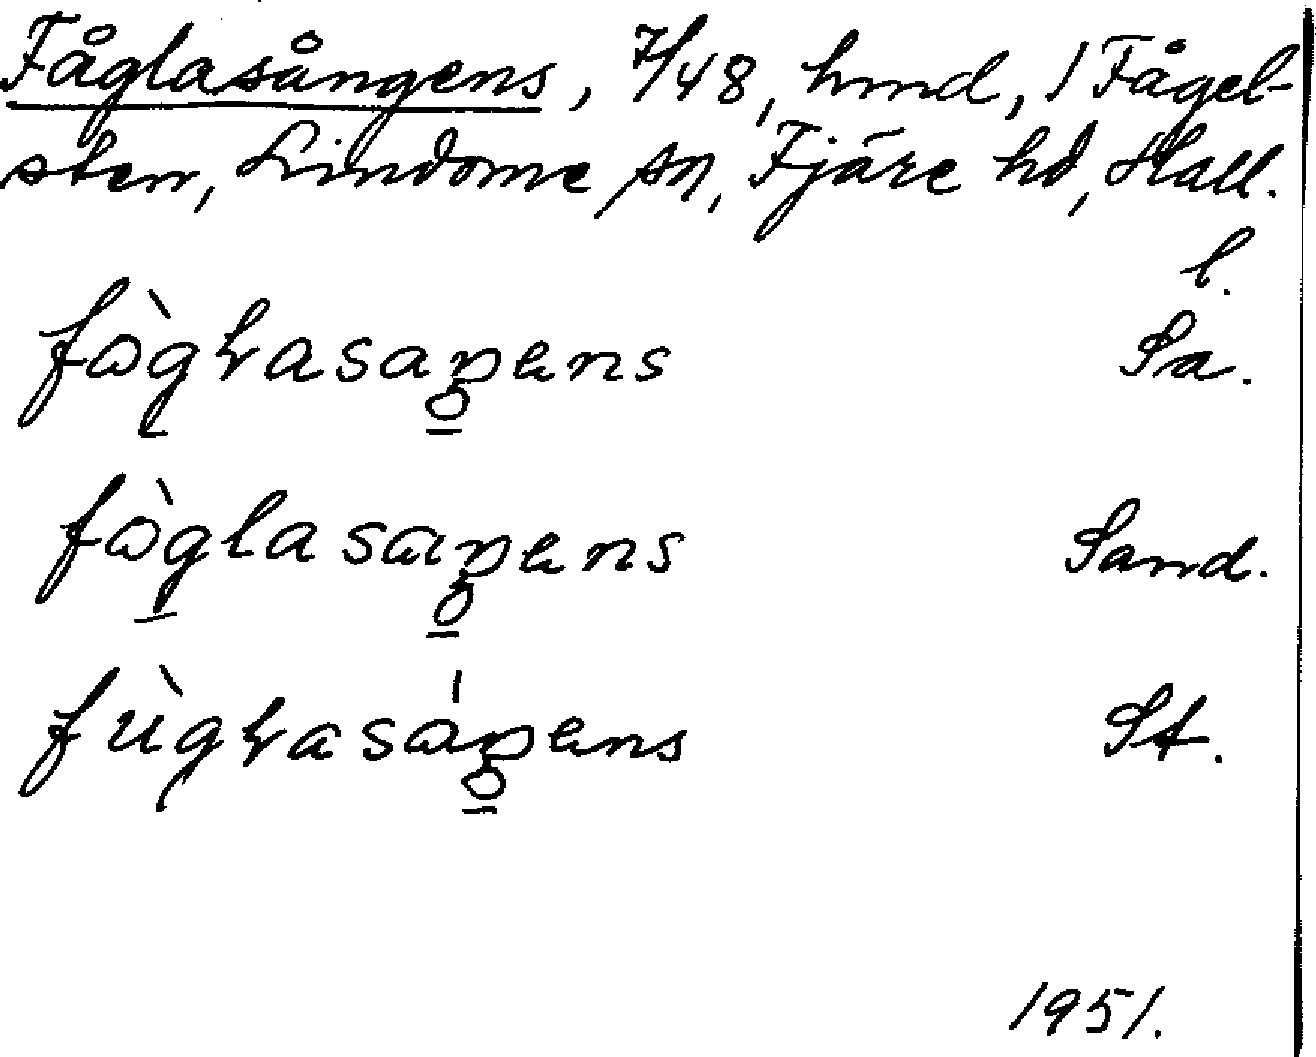 Fåglasångens, 7/48, hmd, 1 Fågel-
sten, Lindome sn, Fjäre hd, Hall.
l.
fὼgɫasaŋens Sa.
fὼglasaŋens Sand.
fùgɫasáŋens St.
1951.